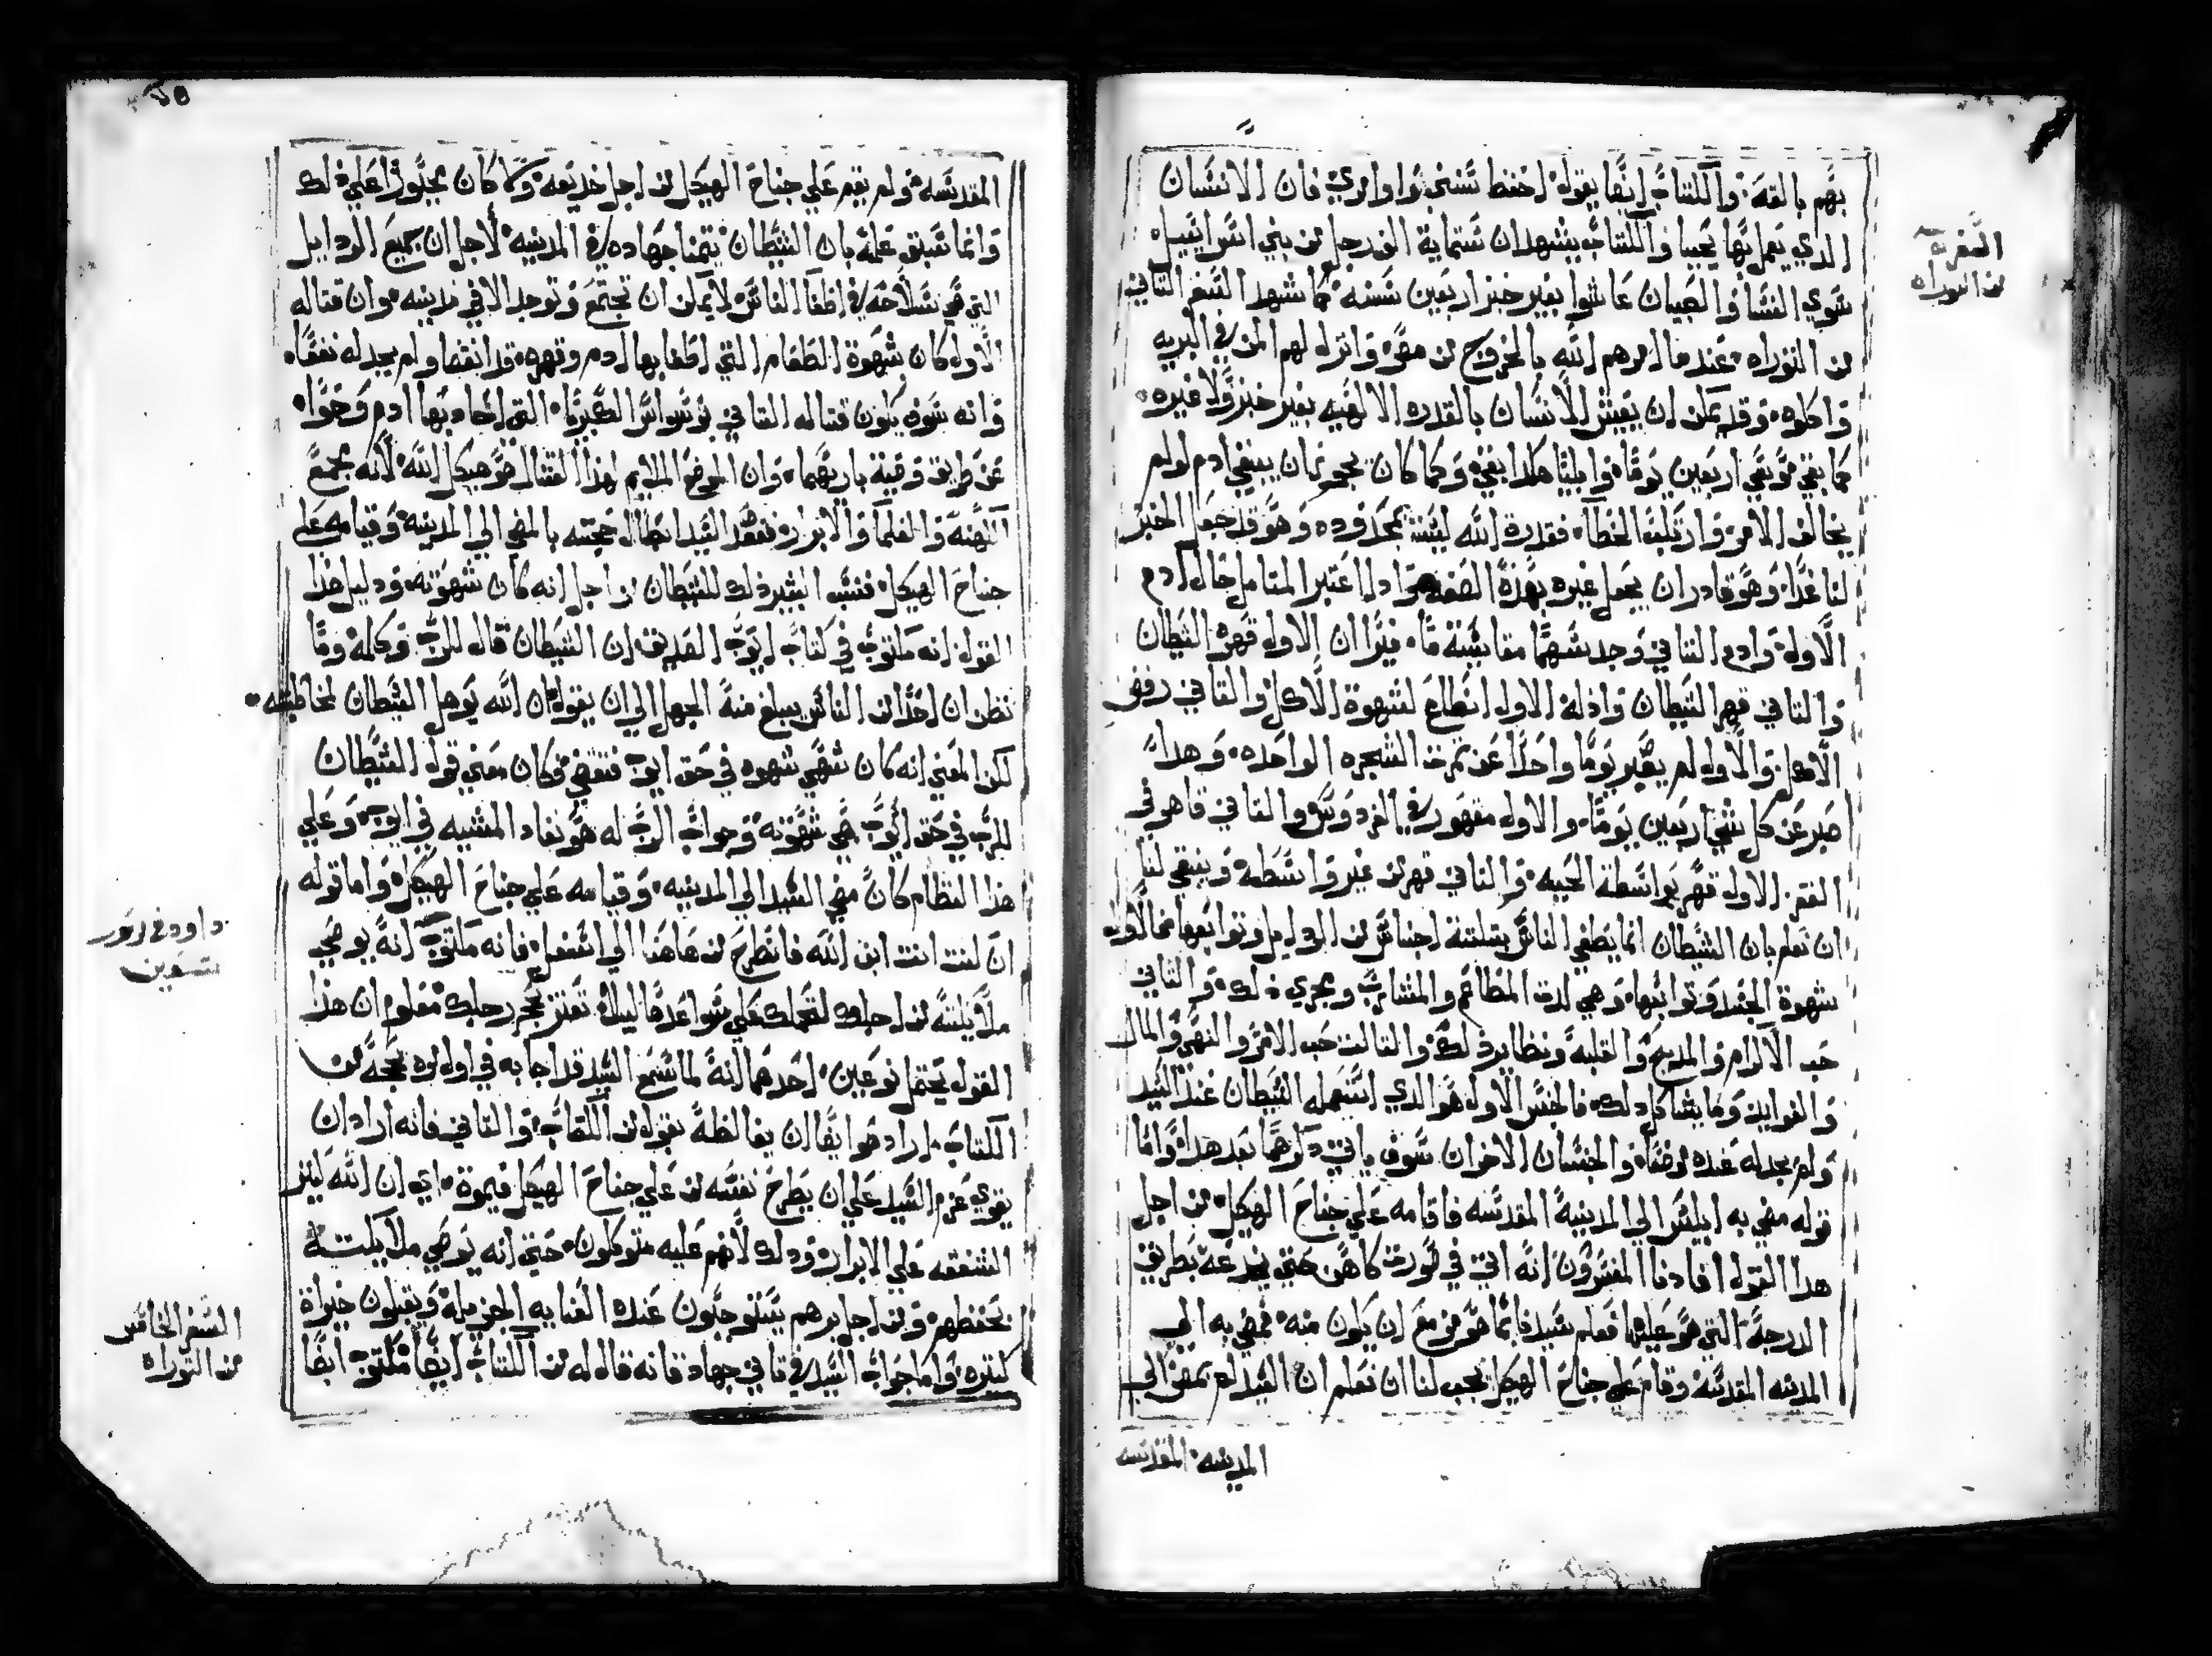 بهم بالقه والكتاب ايضا يقول احفظ سنني واوامري فان الانسان
الدي يعمل بها يحيا والكتاب يشهد ان ستماية الف رجل من بني اسراييل
سوي النسا والصبيان عاشوا بغير خبز اربعين سنه كما شهد السفر التاني
من التوراه عندما امرهم الله بالخروج من مصر وانزل لهم المن في البريه
واكلوه وقد يمكن ان يعيش الانسان بالقدره الالهيه بغير خبز ولا غيره
كما بقي موسي اربعين يوما وايليا هكدا بقي وكما كان يجوز ان يبقي ادم لو لم
يخالف الامر وارتكب الخطا فقدرة الله ليست بمحدوده وهو قد جعل الخبز
لنا غدا وهو قادر ان يجعل غيره بهذه الصفه وادا اعتبر المتامل حال ادم
الاول وادم التاني وجد بينهما مقايسة ما فيرا ان الاول قهره الشيطان
والتاني قهر الشيطان واذله الاول انطاع لشهوة الاكل والتاني رفض
الاكل والاول لم يصبر يوما واحدا عن تمرت الشجره الواحده وهدا
صبر عن كل شي اربعين يوما والاول مقهور في الفردوس والتاني قاهر في
القفر الاول قهر بواسطة الحيه والتاني قهر من غير واسطه وينبغي لنا
ان نعلم بان الشيطان انما يطغي الناس بتلتة اجناس من الردايل وتوابعها فالاول
شهوة الجسد وتوابعها وهي لدت المطاعم والمشارب ويجري دلك والتاني
حب الاكرام والمديح والغلبة ونظاير ذلك والتالت حب الامر والنهي والمال
والفوايد وما يشاكل دلك فالجنس الاول هو الدي استعمله الشيطان عند السيد
ولم يجد له عنده موضعا والجنسان الاخران سوف ياتي دكرهما بعد هدا واما
قوله مضي به ابليس الي المدينة المقدسه فاقامه علي جناح الهيكل من اجل
هدا القول افادنا المفسرون انه اتي في صورت كاهن حتي يخدعه بطريق
الدرجة التي هو عليها فعلم سيدنا بما هو مزمع ان يكون منه فمضي به الي
المدينه المقدسه وقام علي جناح الهيكل يجب لنا ان نعلم ان السيد لم يمض الي
المدينه المقدسه
السفر
من التوراه
المقدسه ولم يقم علي جناح الهيكل من اجل خديعه وكان مجبورا علي ذلك
وانما سبق علمه بان الشيطان يتمنا جهاده في المدينه لاجل ان جميع الردايل
التي هي سلاحه في اطغا الناس لا يمكن ان تجتمع وتوجد الا في مدينه وان قتاله
الاول كان بشهوة الطعام التي اطغا بها ادم وقهره قد انقضا ولم يجد له نفعا
وانه سوف يكون قتاله التاني بوسواس الكبريا التي احاد بها ادم وحوا
عن طريق وصية باريهما وان الموضع الملايم لهذا القتال هو هيكل الله لانه مجمع
الكهنه والعلما والابرار فقصد السيد ابطال حجته بالمضي الي المدينه وقيامه علي
جناح الهيكل فنسب البشير ذلك للشيطان من اجل انه كان شهوته ودليل هذا
القول انه مكتوب في كتاب ايوب الصديق ان الشيطان قال للرب وكلمه وما
نظن ان احدا من الناس يبلغ منه الجهل الي ان يقول ان الله يوهل الشيطان لمخاطبته
لكن المعني انه كان شهي شهوه في حق ايوب فتقضي فكان معني قول الشيطان
للرب في حق ايوب هي شهوته وجواب الرب له هو نفاد المشيه في ايوب وعلي
هذا النظام كان مضي السيد الي المدينه وقيامه علي جناح الهيكل واما قوله
ان كنت انت ابن الله فانطرح من هاهنا الي اسفل فانه مكتوب انه يوصي
ملايكته من اجلك لتحملك علي سواعدها ليلا تعتر بحجر رجلك معلوم ان هذا
القول يحتمل نوعين احدهما انه لما سمع السيد قد اجابه في اول مره بحجة من
الكتاب اراد هو ايضا ان يغالطه بقول من الكتاب والتاني فانه اراد ان
يقوي عزم السيد علي ان يطرح نفسه من علي جناح الهيكل فيموت اي ان الله كثير
الشفقه علي الابرار ودلك لانهم عليه متوكلون حتي انه يوصي ملايكته
بحفظهم ومن اجل برهم يستوجبون عنده العنايه الجزيله ويقبلون خيراة
كتيره واما جواب السيد في تاني جهاد فانه قال له من الكتاب ايضا مكتوب ايضا
داود في زبور
تسعين
السفر الخامس
من التوراه